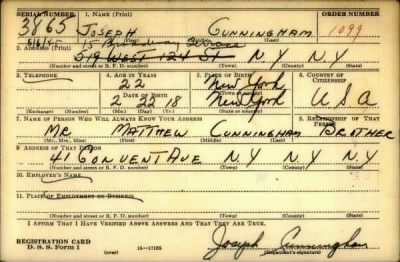 SERIAL NUMBER 1. NAME (Print) ORDER NUMBER
3865 JOSEPH CUNNINGHAM 1099
5/6/45 15 Broadway Terrace
(First) (Middle) (Last)
2. ADDRESS (Print)
519 WEST 124 ST N.Y N.Y
(Number and street or R. F. D. number) (Town) (County) (State)
3. TELEPHONE 4. AGE IN YEARS 5. PLACE OF BIRTH 6. COUNTRY OF CITIZENSHIP
22 New York
DATE OF BIRTH (Town or county)
2 22 18 New York U S A
(Exchange) (Number) (Mo.) (Day) (Yr.) (State or country)
7. NAME OF PERSON WHO WILL ALWAYS KNOW YOUR ADDRESS 8. RELATIONSHIP OF THAT PERSON
MR. MATTHEW CUNNINGHAM BROTHER
(Mr., Mrs., Miss) (First) (Middle) (Last)
9. ADDRESS OF THAT PERSON
41 CONVENT AVE N.Y. N.Y. N.Y
(Number and street or R. F. D. number) (Town) (County) (State)
10. EMPLOYER'S NAME
11. PLACE OF EMPLOYMENT OR BUSINESS
(Number and street or R. F. D. number) (Town) (County) (State)
I AFFIRM THAT I HAVE VERIFIED ABOVE ANSWERS AND THAT THEY ARE TRUE.
REGISTRATION CARD
D. S. S. Form 1 (over) 16—17105 Joseph Cunningham
(Registrant's signature)